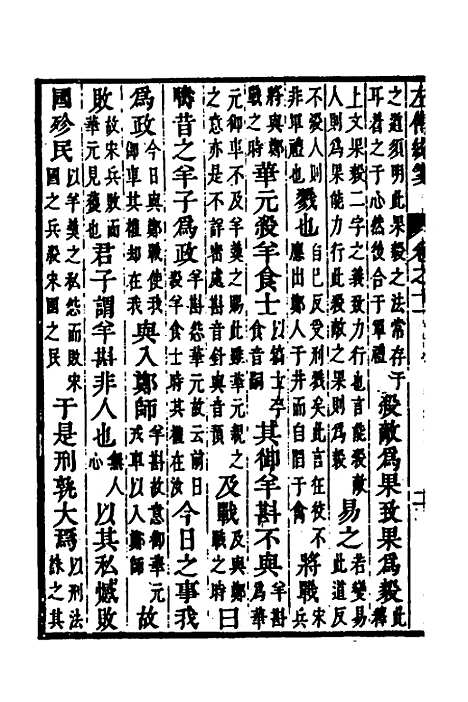 左傳統箋 卷之十一
之道須明此果毅之法常存于耳着之于心然後合于軍禮殺敵爲果致果爲毅此釋
上文果毅二字之義致力行也言能殺敵人則爲果能力行此致果則爲毅易之若變易此道反
不殺人則非軍禮也戮也自己反受刑戮矣此言在狡不應出鄭人于井而自陷于禽將戰宋兵
將與鄭戰之時華元殺羊食士以犒士卒食音嗣其御羊斟不與羊斟爲華
元御車不及羊羹之賜此雖華元親之之意亦是不詳密處斟音針與音預及戰及與鄭戰之時曰
疇昔之羊子爲政羊斟怨華元故云前日殺羊食士時其權在汝今日之事我
爲政今日與鄭戰使我御車其權却在我與入鄭師羊斟故意御華元戎車以入鄭師故
敗故宋兵敗而華元見獲也君子謂羊斟非人也無人心以其私憾敗
國殄民以羊羹之私怨而敗宋國之兵殺宋國之民于是刑孰大焉以刑法誅之其